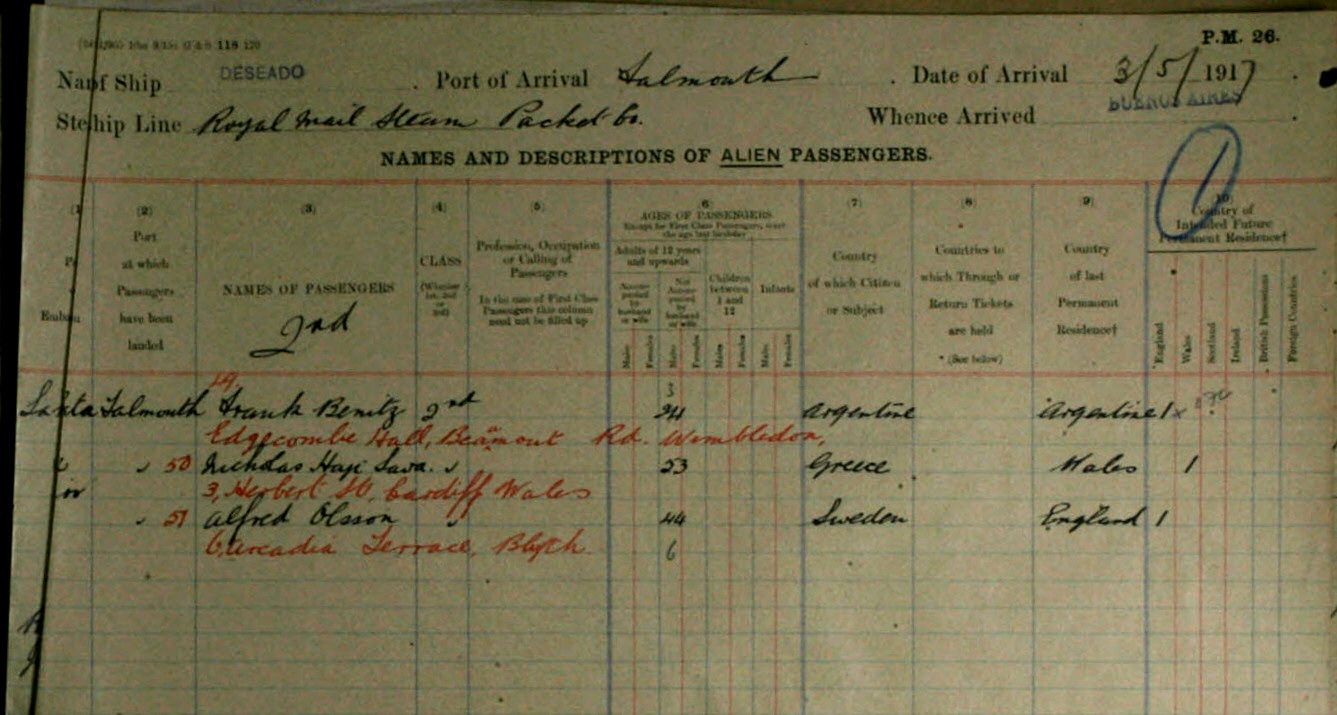 118
P.M. 26.
Ship DESEADO Port of Arrival Falmouth Date of Arrival 3/5/1917
hip Line Royal Mail Steam Packet Co. Whence Arrived BUENOS AIRES
NAMES AND DESCRIPTIONS OF ALIEN PASSENGERS.
1
(2) (3) (4) (5) (6) (7) (8) (9) (10)
Port at which Passengers have been landed
NAMES OF PASSENGERS
2nd
CLASS
(Whether 1st, 2nd or 3rd)
Profession, Occupation or Calling of Passengers
In the case of First Class Passengers this column need not be filled up
AGES OF PASSENGERS
Except for First Class Passengers, insert the age last birthday
Adults of 12 years and upwards
Accompanied by husband or wife
Not Accompanied by husband or wife
Children between 1 and 12
Infants
Males Females Males Females Males Females Males Females
Country of which Citizen or Subject
Countries to which Through or Return Tickets are held
* (See below)
Country of last Permanent Residence†
Country of Intended Future Permanent Residence†
England Wales Scotland Ireland British Possessions Foreign Countries
3
Falmouth Frank Benitz 2nd 24 Argentine Argentine 1 x
Edgecombe Hall, Beaumont Rd. Wimbledon,
" 50 Nicholas Haji Sava. " 53 Greece Wales 1
3, Herbert St, Cardiff Wales
" 51 Alfred Olsson " 44 Sweden England 1
6, Arcadia Terrace, Blyth. 6